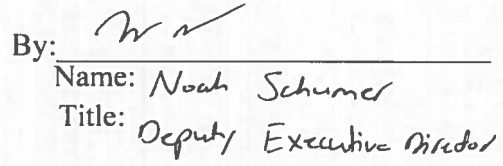 By:
Name: Noah Schumer
Title: Deputy Executive Director